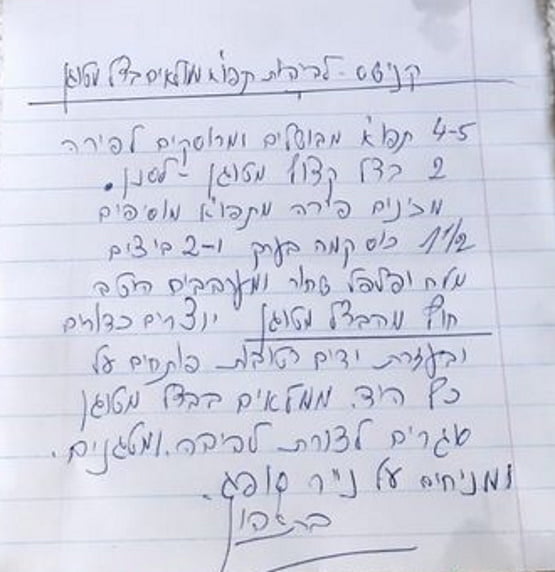 קנישס - לביבות תפוא ממולאים בצל מטוגן
4-5 תפוא מבושלים ומרוסקים לפירה
2 בצל קצוץ מטוגן - לסנן.
מכינים פירה מתפוא מוסיפים
1 1/2 כוס קמח בערך ו-2 ביצים
מלח ופלפל שחור ומערבבים היטב
חוץ מהבצל מטוגן יוצרים כדורים
ובעזרת ידים רטובות פותחים על
כף היד. ממלאים בבצל מטוגן
סגרים לצורת לביבה. ומטגנים.
ומניחים על נייר סופג.
בתאבון